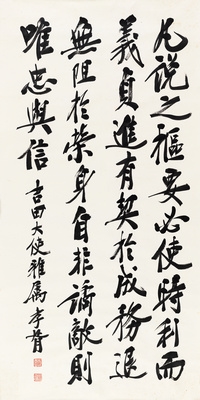 凡說之樞要必使時利而
義貞進有契於成務退
無阻於榮身自非譎敵則
唯忠與信
吉田大使雅屬 李肖